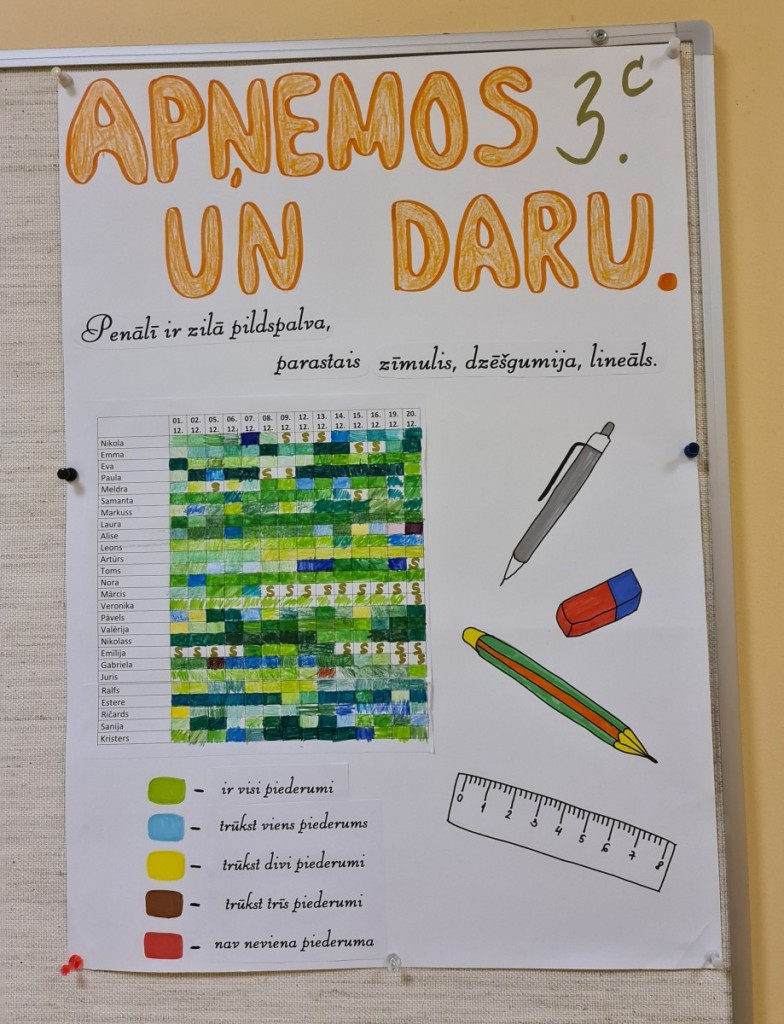 APŅEMOS 3.c
UN DARU.
Penālī ir zilā pildspalva,
parastais zīmulis, dzēšgumija, lineāls.
01. 02. 05. 06. 07. 08. 09. 12. 13. 14. 15. 16. 19. 20.
12. 12. 12. 12. 12. 12. 12. 12. 12. 12. 12. 12. 12. 12.
Nikola S S S
Emma S S
Eva
Paula S S
Meldra S
Samanta S
Markuss
Laura
Alise
Leons
Artūrs
Toms S
Nora
Mārcis S S S S S S S S
Veronika S
Pāvels
Valērija
Nikolass
Emīlija S S S S S S S S S
Gabriela S S
Juris
Ralfs
Estere
Ričards
Sanija
Kristers
- ir visi piederumi
- trūkst viens piederums
- trūkst divi piederumi
- trūkst trīs piederumi
- nav neviena piederuma
0 1 2 3 4 5 6 7 8